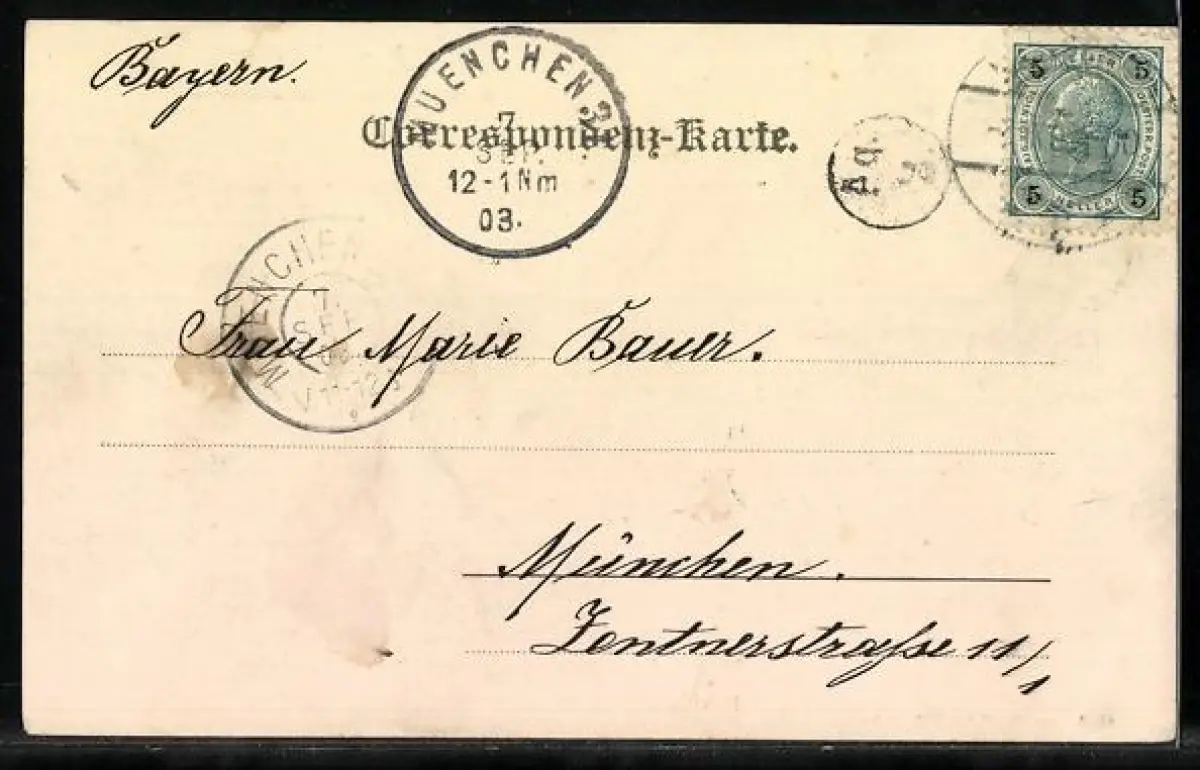 Bayern.
MUENCHEN 3
7
SEP.
12-1Nm
03.
Correspondenz-Karte.
Ag.
5 5
5 HELLER 5
MUENCHEN
7.
SEP
V 11-12
Frau Marie Bauer.
München.
Zentnerstraſse 11/1